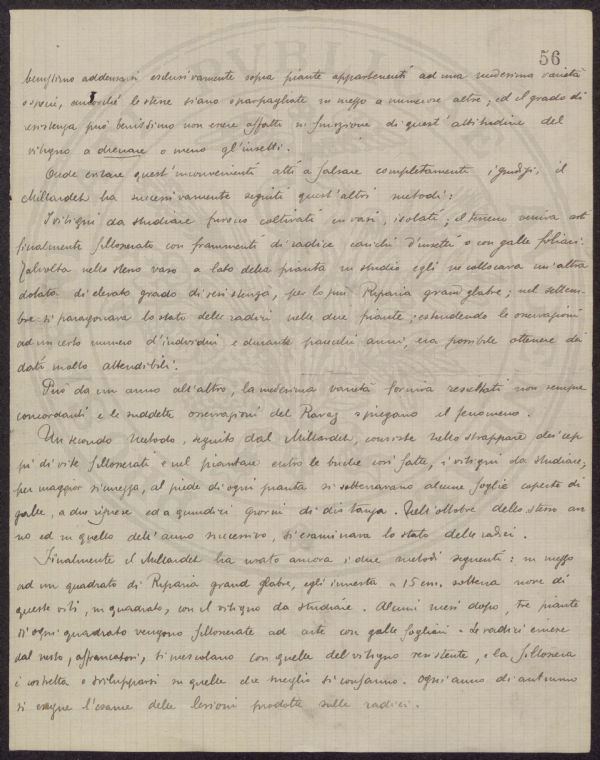 56
benissimo addensarsi esclusivamente sopra piante appartenenti ad una medesima varietà
o specie, anzichè le stesse siano sparpagliate in mezzo a numerose altre; ed il grado di
resistenza può benissimo non essere affatto in funzione di quest'attitudine del
vitigno a drenare o meno gl'insetti.
Onde evitare quest'inconvenienti atti a falsare completamente i giudizi, il
Millardet ha successivamente seguiti quest'altri metodi:
I vitigni da studiare furono coltivati in vasi, isolati; il terreno veniva arti
ficialmente fillosserato con frammenti di radice carichi d'insetti o con galle fogliari.
Talvolta nello stesso vaso a lato della pianta in studio egli ne collocava un'altra
dotata di elevato grado di resistenza, per lo più Riparia grand glabre; nel settem-
bre si paragonava lo stato delle radici nelle due piante; estendendo le osservazioni
ad un certo numero d'individui e durante parecchi anni, era possibile ottenere dei
dati molto attendibili.
Però da un anno all'altro, la medesima varietà forniva resultati non sempre
concordanti e le suddette osservazioni del Ravaz spiegano il fenomeno.
Un secondo metodo, seguito dal Millardet, consiste nello strappare dei cep
pi di vite fillosserati e nel piantare entro le buche così fatte, i vitigni da studiare;
per maggior sicurezza, al piede di ogni pianta si sotterravano alcune foglie coperte di
galle, a due riprese ed a quindici giorni di distanza. Nell'ottobre dello stesso an
no ed in quello dell'anno successivo, si esaminava lo stato delle radici.
Finalmente il Millardet ha usato ancora i due metodi seguenti: in mezzo
ad un quadrato di Riparia grand glabre, egli innesta a 15 cm. sotterra nove di
queste viti, in quadrato, con il vitigno da studiare. Alcuni mesi dopo, tre piante
d'ogni quadrato vengono fillosserate ad arte con galle fogliari. Le radici emesse
dal nesto, affrancatosi, si mescolano con quelle del vitigno resistente, e la fillossera
è costretta a svilupparsi su quelle che meglio si confanno. Ogni anno di autunno
si esegue l'esame delle lesioni prodotte sulle radici.